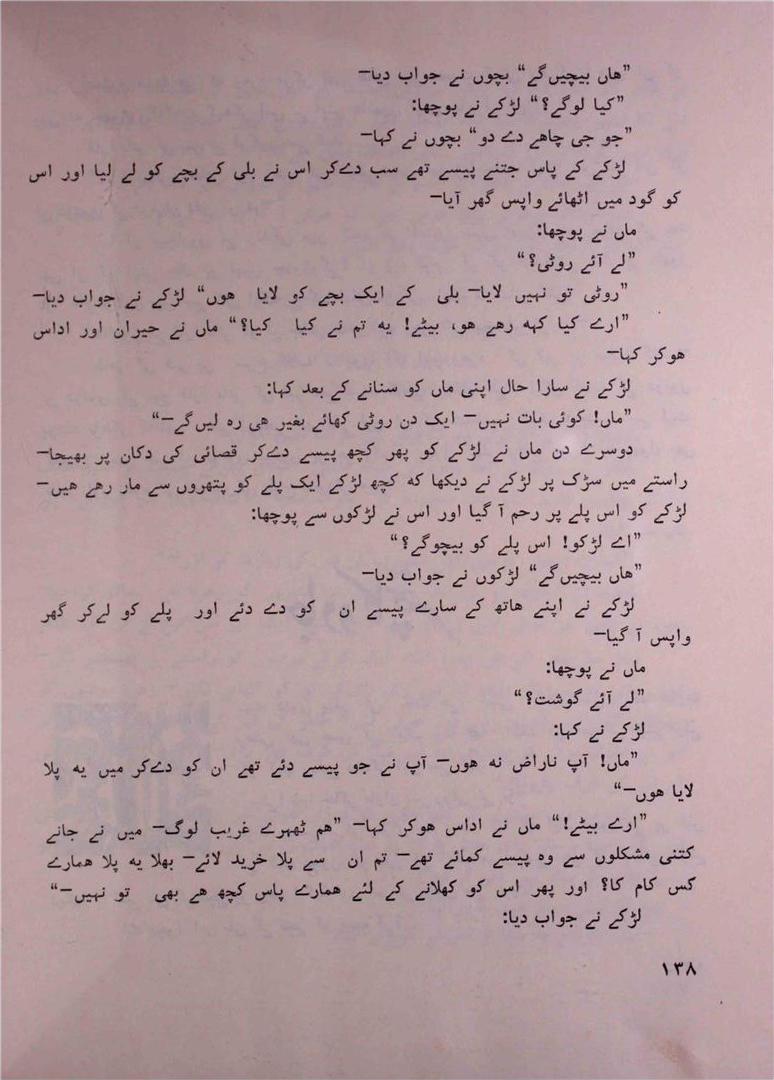 ”هاں بیچیں گے“ بچوں نے جواب دیا—
”کیا لوگے؟“ لڑکے نے پوچھا:
”جو جی چاهے دے دو“ بچوں نے کہا—
لڑکے کے پاس جتنے پیسے تھے سب دے کر اس نے بلی کے بچے کو لے لیا اور اس
کو گود میں اٹھائے واپس گھر آیا—
ماں نے پوچھا:
”لے آئے روٹی؟“
”روٹی تو نہیں لایا— بلی کے ایک بچے کو لایا هوں“ لڑکے نے جواب دیا—
”ارے کیا کہه رهے هو، بیٹے! یه تم نے کیا کیا؟“ ماں نے حیران اور اداس
هوکر کہا—
لڑکے نے سارا حال اپنی ماں کو سنانے کے بعد کہا:
”ماں! کوئی بات نہیں— ایک دن روٹی کھائے بغیر هی ره لیں گے—“
دوسرے دن ماں نے لڑکے کو پھر کچھ پیسے دے کر قصائی کی دکان پر بھیجا—
راستے میں سڑک پر لڑکے نے دیکھا که کچھ لڑکے ایک پلے کو پتھروں سے مار رهے هیں—
لڑکے کو اس پلے پر رحم آ گیا اور اس نے لڑکوں سے پوچھا:
”اے لڑکو! اس پلے کو بیچوگے؟“
”هاں بیچیں گے“ لڑکوں نے جواب دیا—
لڑکے نے اپنے هاتھ کے سارے پیسے ان کو دے دئے اور پلے کو لے کر گھر
واپس آ گیا—
ماں نے پوچھا:
”لے آئے گوشت؟“
لڑکے نے کہا:
”ماں! آپ ناراض نه هوں— آپ نے جو پیسے دئے تھے ان کو دے کر میں یه پلا
لایا هوں—“
”ارے بیٹے!“ ماں نے اداس هوکر کہا— ”هم ٹھہرے غریب لوگ— میں نے جانے
کتنی مشکلوں سے وه پیسے کمائے تھے— تم ان سے پلا خرید لائے— بھلا یه پلا همارے
کس کام کا؟ اور پھر اس کو کھلانے کے لئے همارے پاس کچھ هے بھی تو نہیں—“
لڑکے نے جواب دیا:
۱۳۸